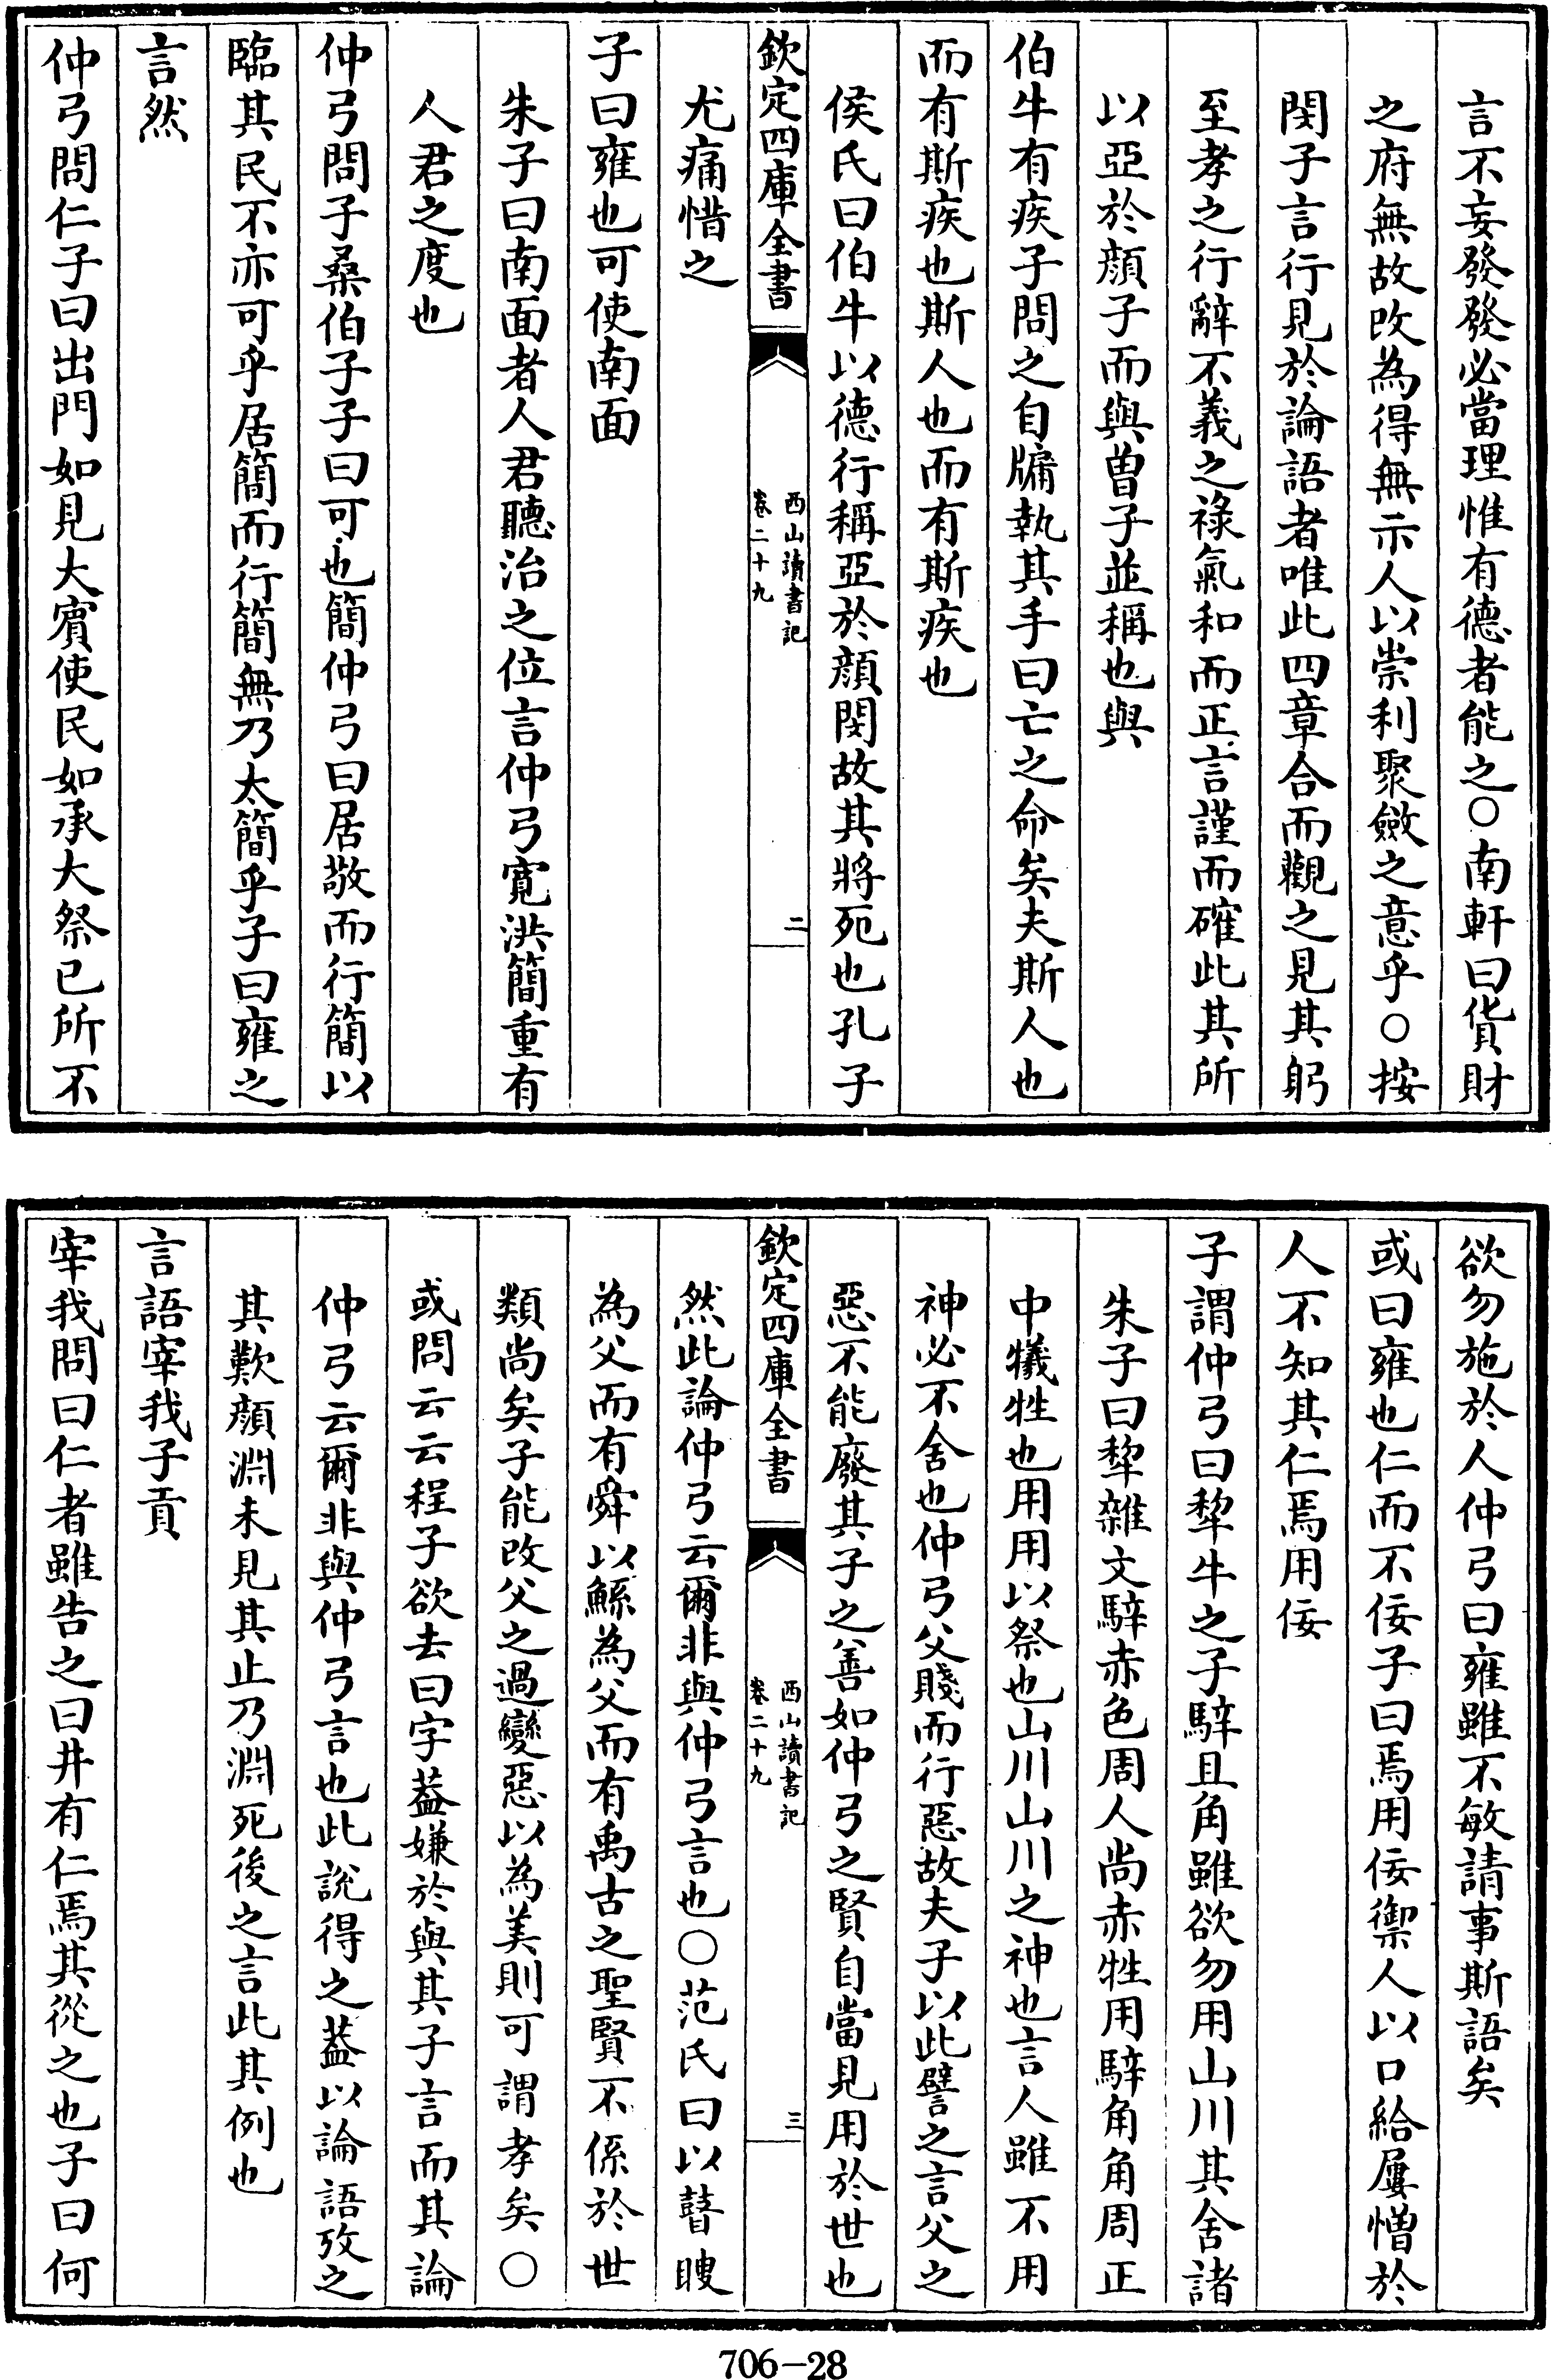 言不妄發發必當理惟有德者能之○南軒曰貨財
之府無故改為得無示人以崇利聚斂之意乎○按
閔子言行見於論語者唯此四章合而觀之見其躬
至孝之行辭不義之祿氣和而正言謹而確此其所
以亞於顔子而與曽子並稱也與
伯牛有疾子問之自牖執其手曰亡之命矣夫斯人也
而有斯疾也斯人也而有斯疾也
侯氏曰伯牛以德行稱亞於顔閔故其將死也孔子
欽定四庫全書
西山讀書記
卷二十九
二
尤痛惜之
子曰雍也可使南面
朱子曰南面者人君聽治之位言仲弓寛洪簡重有
人君之度也
仲弓問子桑伯子子曰可也簡仲弓曰居敬而行簡以
臨其民不亦可乎居簡而行簡無乃太簡乎子曰雍之
言然
仲弓問仁子曰出門如見大賓使民如承大祭已所不
欲勿施於人仲弓曰雍雖不敏請事斯語矣
或曰雍也仁而不佞子曰焉用佞禦人以口給屢憎於
人不知其仁焉用佞
子謂仲弓曰犂牛之子騂且角雖欲勿用山川其舍諸
朱子曰犂雜文騂赤色周人尚赤牲用騂角角周正
中犧牲也用用以祭也山川山川之神也言人雖不用
神必不舍也仲弓父賤而行惡故夫子以此譬之言父之
惡不能廢其子之善如仲弓之賢自當見用於世也
欽定四庫全書
西山讀書記
卷二十九
三
然此論仲弓云爾非與仲弓言也○范氏曰以瞽瞍
為父而有舜以鯀為父而有禹古之聖賢不係於世
類尚矣子能改父之過變惡以為美則可謂孝矣○
或問云云程子欲去曰字葢嫌於與其子言而其論
仲弓云爾非與仲弓言也此說得之葢以論語攷之
其歎顔淵未見其止乃淵死後之言此其例也
言語宰我子貢
宰我問曰仁者雖告之曰井有仁焉其從之也子曰何
706-28